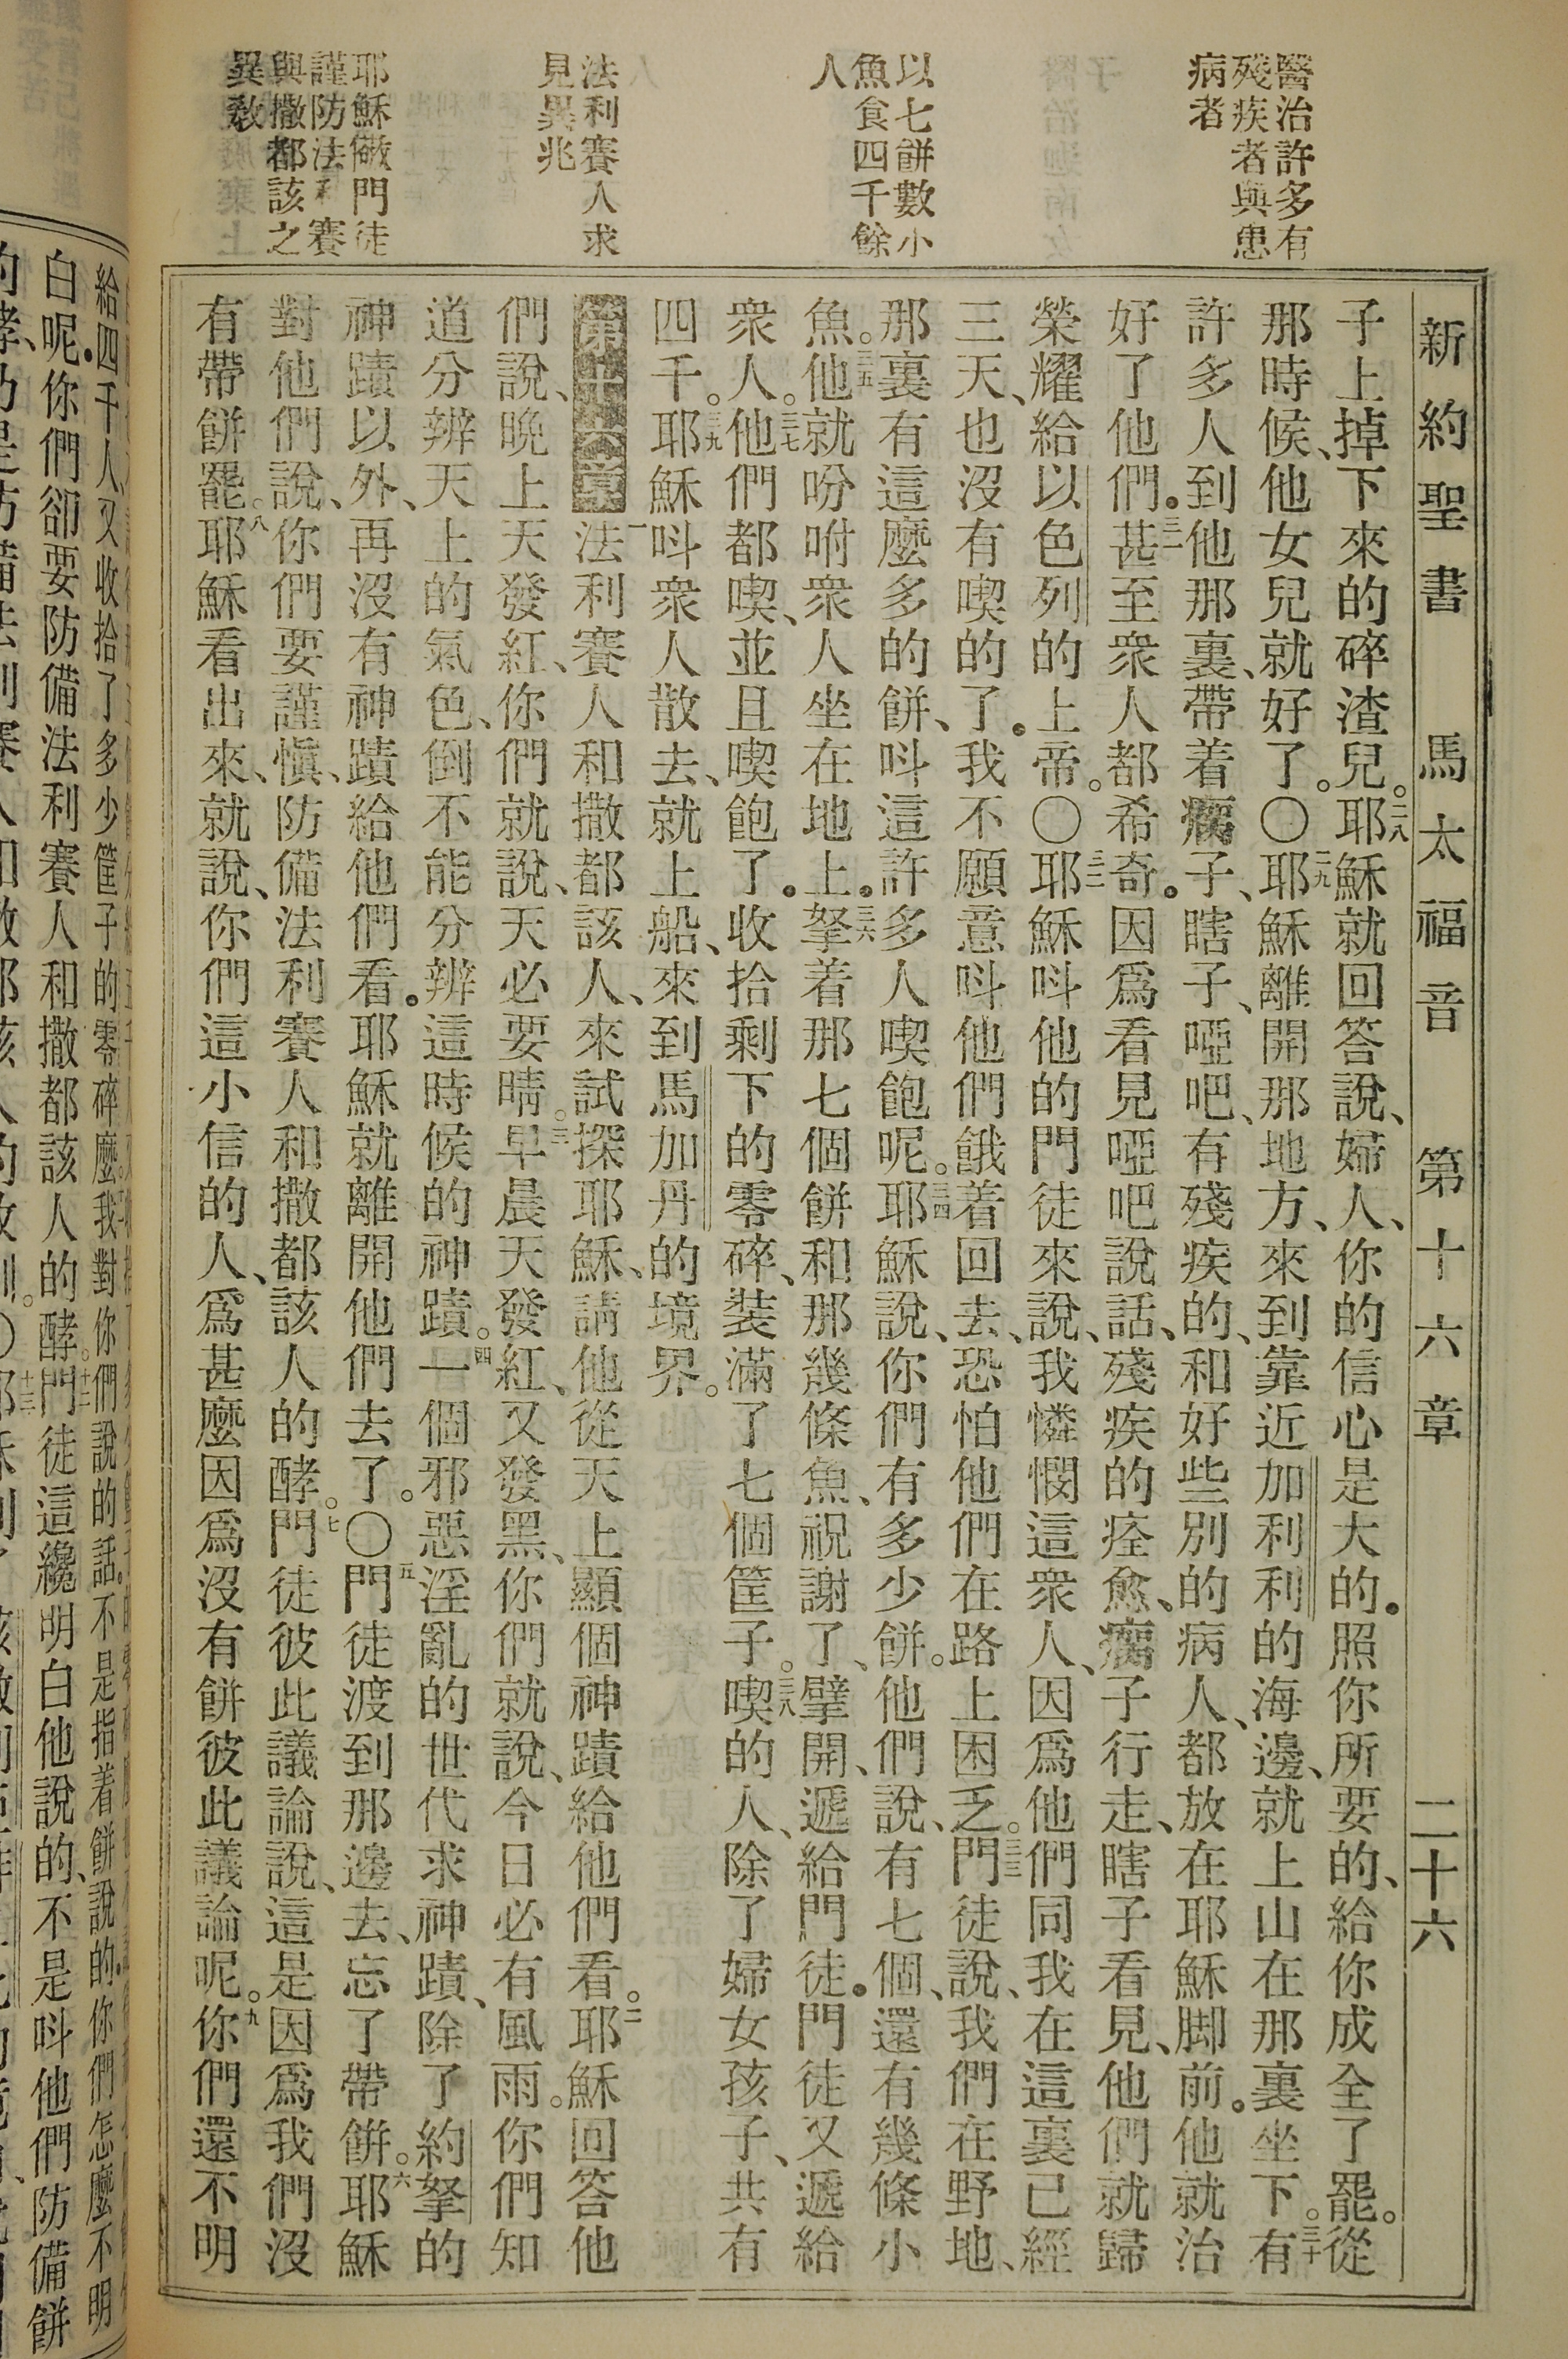 新約聖書 馬太福音 第十六章 二十六
醫治許多有
殘疾者與患
病者
以七餅數小
魚食四千餘
人
法利賽人求
見異兆
耶穌儆門徒
謹防法利賽
與撒都該之
異敎
子上掉下來的碎渣兒。二八耶穌就回答說、婦人、你的信心是大的。照你所要的、給你成全了罷。從
那時候、他女兒就好了。〇二九耶穌離開那地方、來到靠近加利利的海邊、就上山在那裏坐下。三十有
許多人到他那裏、帶着瘸子、瞎子、啞吧、有殘疾的、和好些別的病人、都放在耶穌脚前。他就治
好了他們。三一甚至衆人都希奇。因爲看見啞吧說話、殘疾的痊愈、瘸子行走、瞎子看見、他們就歸
榮耀給以色列的上帝。〇三二耶穌呌他的門徒來說、我憐憫這衆人、因爲他們同我在這裏已經
三天、也沒有喫的了。我不願意呌他們餓着回去、恐怕他們在路上困乏。三三門徒說、我們在野地、
那裏有這麽多的餅、呌這許多人喫飽呢。三四耶穌說、你們有多少餅。他們說、有七個、還有幾條小
魚。三五他就吩咐衆人坐在地上。三六拏着那七個餅和那幾條魚、祝謝了、擘開、遞給門徒。門徒又遞給
衆人。三七他們都喫、並且喫飽了。收拾剩下的零碎、裝滿了七個筐子。三八喫的人、除了婦女孩子、共有
四千。三九耶穌呌衆人散去、就上船、來到馬加丹的境界。
第十六章 一法利賽人和撒都該人、來試探耶穌、請他從天上顯個神蹟給他們看。二耶穌回答他
們說、晚上天發紅、你們就說、天必要晴。三早晨天發紅、又發黑、你們就說、今日必有風雨。你們知
道分辨天上的氣色、倒不能分辨這時候的神蹟。四一個邪惡淫亂的世代求神蹟、除了約拏的
神蹟以外、再沒有神蹟給他們看。耶穌就離開他們去了。〇五門徒渡到那邊去、忘了帶餅。六耶穌
對他們說、你們要謹愼、防備法利賽人和撒都該人的酵。七門徒彼此議論說、這是因爲我們沒
有帶餅罷。八耶穌看出來、就說、你們這小信的人、爲甚麽因爲沒有餅彼此議論呢。九你們還不明
給四千人、又收拾了多少筐子的零碎麽。我對你們說的話。不是指着餅說的。你們怎麽不明
白呢。你們卻要防備法利賽人和撒都該人的酵。十二門徒這纔明白他說的、不是呌他們防備餅